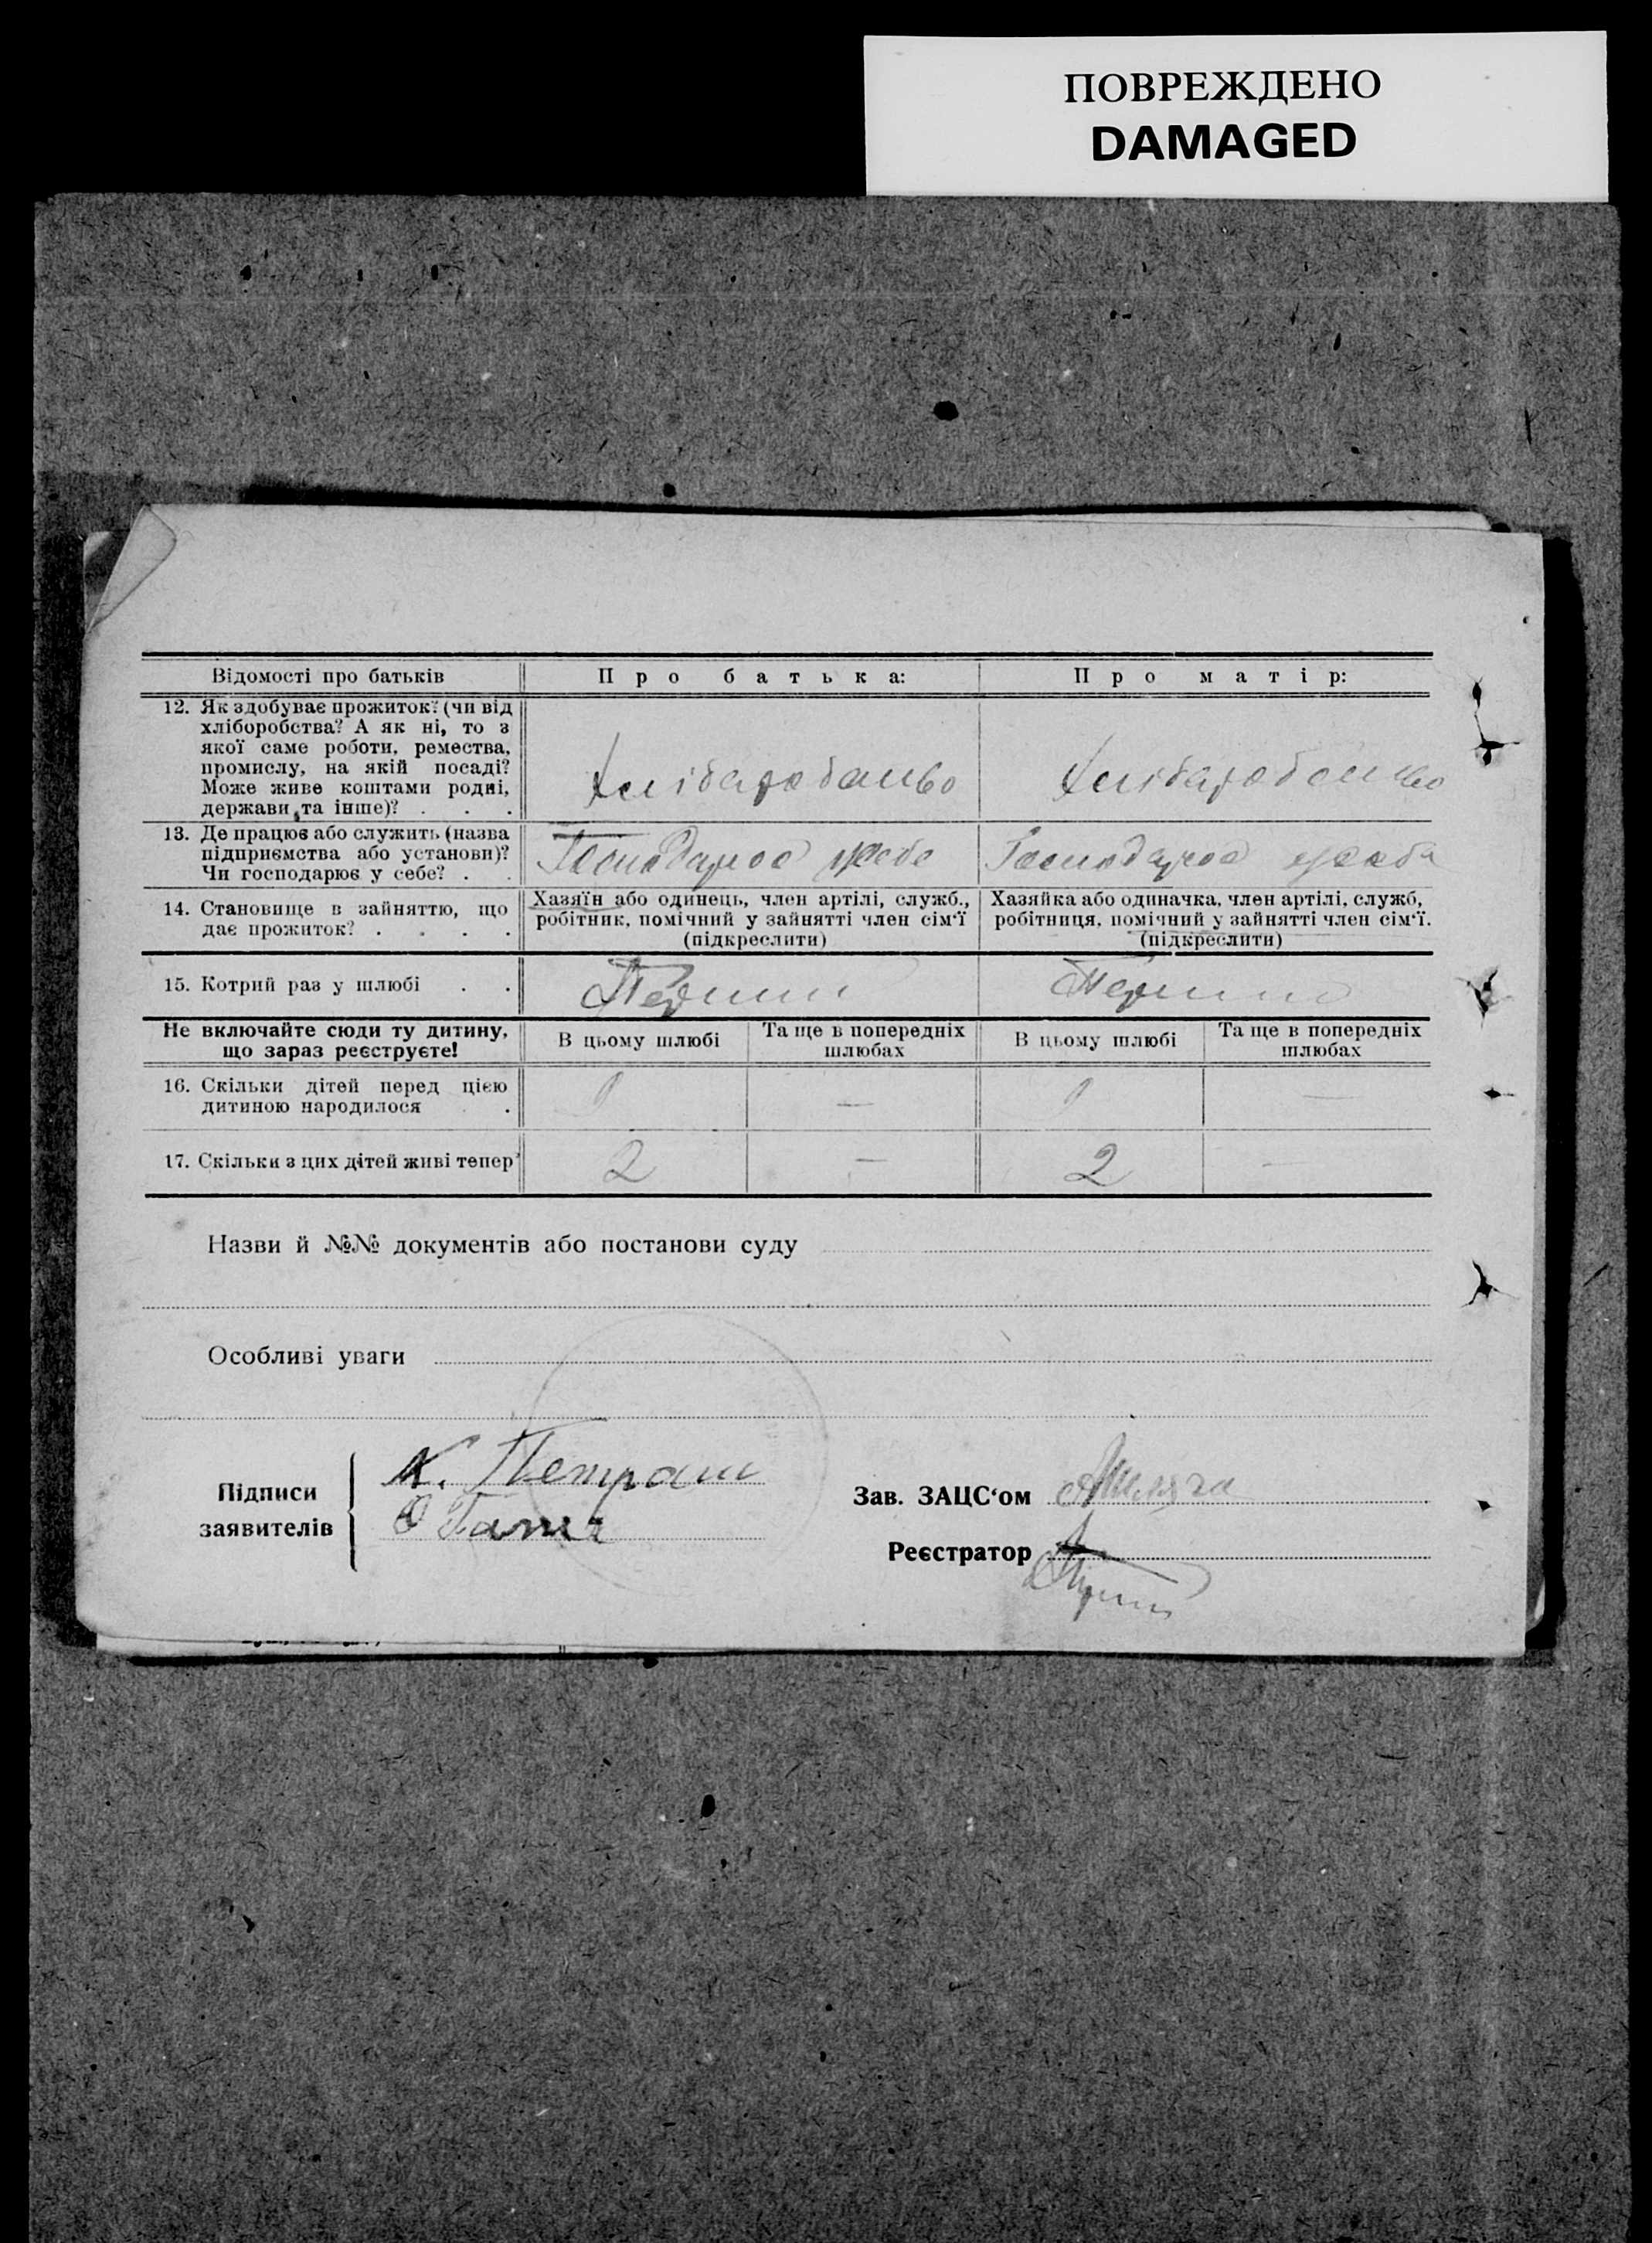 ПОВРЕЖДЕНО
DAMAGED
Відомості про батьків
Про батька:
Про матір:
12. Як здобуває прожиток? (чи від
хліборобства? А як ні, то з
якої саме роботи, ремества,
промислу, на якій посаді?
Може живе коштами родні,
держави та інше)? . . .
Хлібаробство
Хлібаробство
13. Де працює або служить (назва
підприємства або установи)?
Чи господарює у себе? . .
Господарює
Господарює
14. Становище в зайняттю, що
дає прожиток? . . . .
Хазяїн або одинець, член артілі, служб.,
робітник, помічний у зайнятті член сім'ї
(підкреслити)
Хазяйка або одиначка, член артілі, служб,
робітниця, помічний у зайнятті член сім'ї.
(підкреслити)
15. Котрий раз у шлюбі . .
Перший
Не включайте сюди ту дитину,
що зараз реєструєте!
В цьому шлюбі
Та ще в попередніх
шлюбах
В цьому шлюбі
Та ще в попередніх
шлюбах
16. Скільки дітей перед цією
дитиною народилося .
—
—
17. Скільки з цих дітей живі тепер?
2
—
2
—
Назви й №№ документів або постанови суду
Особливі уваги
Підписи
заявителів
К. Петраш
Зав. ЗАЦС'ом
Реєстратор